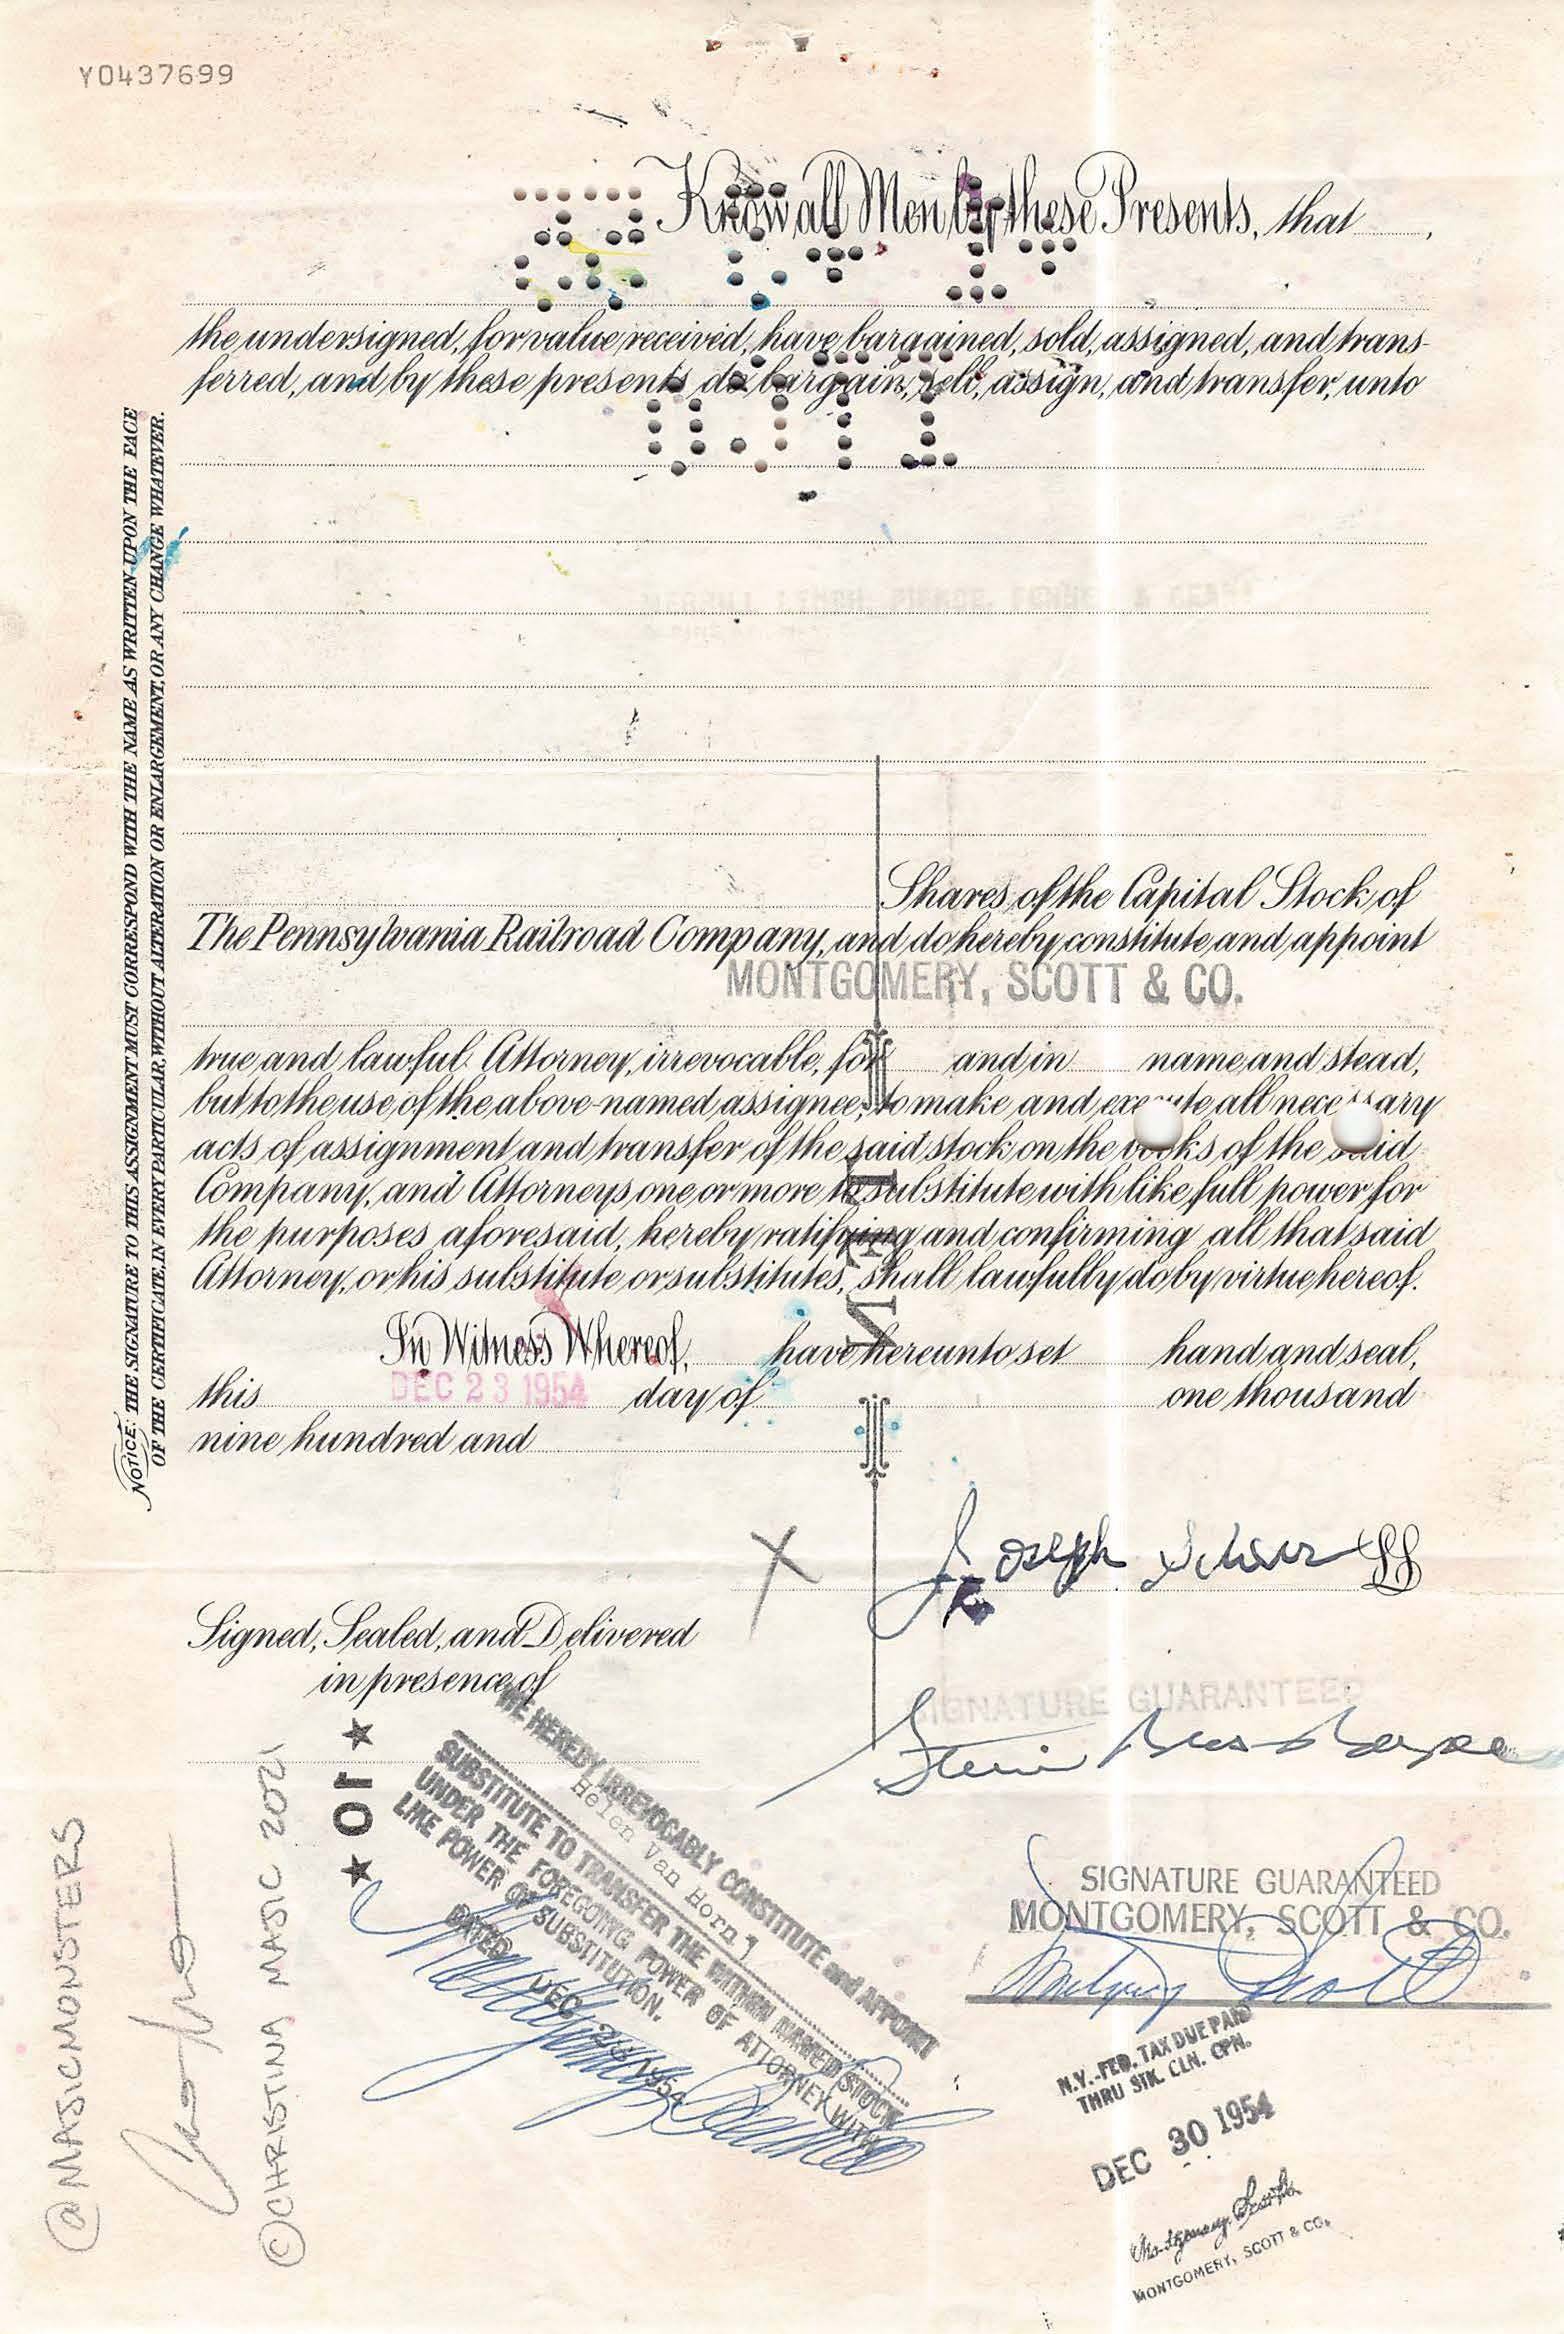 Y0437699
Know all Men by these Presents, that
the undersigned, for value received, have bargained, sold, assigned, and trans-
ferred, and by these presents do bargain, sell, assign, and transfer, unto
Shares of the Capital Stock of
The Pennsylvania Railroad Company, and do hereby constitute and appoint
MONTGOMERY, SCOTT & CO.
true and lawful Attorney, irrevocable, for and in name and stead,
but to the use of the above-named assignee, to make and execute all necessary
acts of assignment and transfer of the said stock on the books of the said
Company, and Attorneys one or more to substitute with like full power for
the purposes aforesaid, hereby ratifying and confirming all that said
Attorney, or his substitute or substitutes, shall lawfully do by virtue hereof.
In Witness Whereof, have hereunto set hand and seal,
this DEC 23 1954 day of one thousand
nine hundred and
X Joseph LS
Signed, Sealed, and Delivered
in presence of
SIGNATURE GUARANTEED
SIGNATURE GUARANTEED
MONTGOMERY, SCOTT & CO.
Montgomery Scott
★ 10 ★
WE HEREBY IRREVOCABLY CONSTITUTE and APPOINT
Helen Van Horn
SUBSTITUTE TO TRANSFER THE WITHIN NAMED STOCK
UNDER THE FOREGOING POWER OF ATTORNEY WITH
LIKE POWER OF SUBSTITUTION.
DATED DEC 1954
N.Y.-FED. TAX DUE PAID
THRU STK. CLN. CPN.
DEC 30 1954
Montgomery, Scott & Co.
MONTGOMERY, SCOTT & CO.
NOTICE: THE SIGNATURE TO THIS ASSIGNMENT MUST CORRESPOND WITH THE NAME AS WRITTEN UPON THE FACE
OF THE CERTIFICATE, IN EVERY PARTICULAR, WITHOUT ALTERATION OR ENLARGEMENT, OR ANY CHANGE WHATEVER.
@MAJICMONSTERS
©CHRISTINA MAJIC 2021